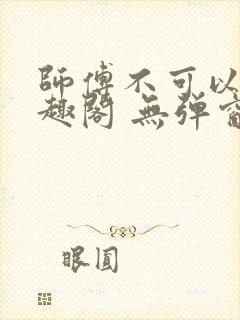 師傅不可以
趣閣 無彈窗
眼圓